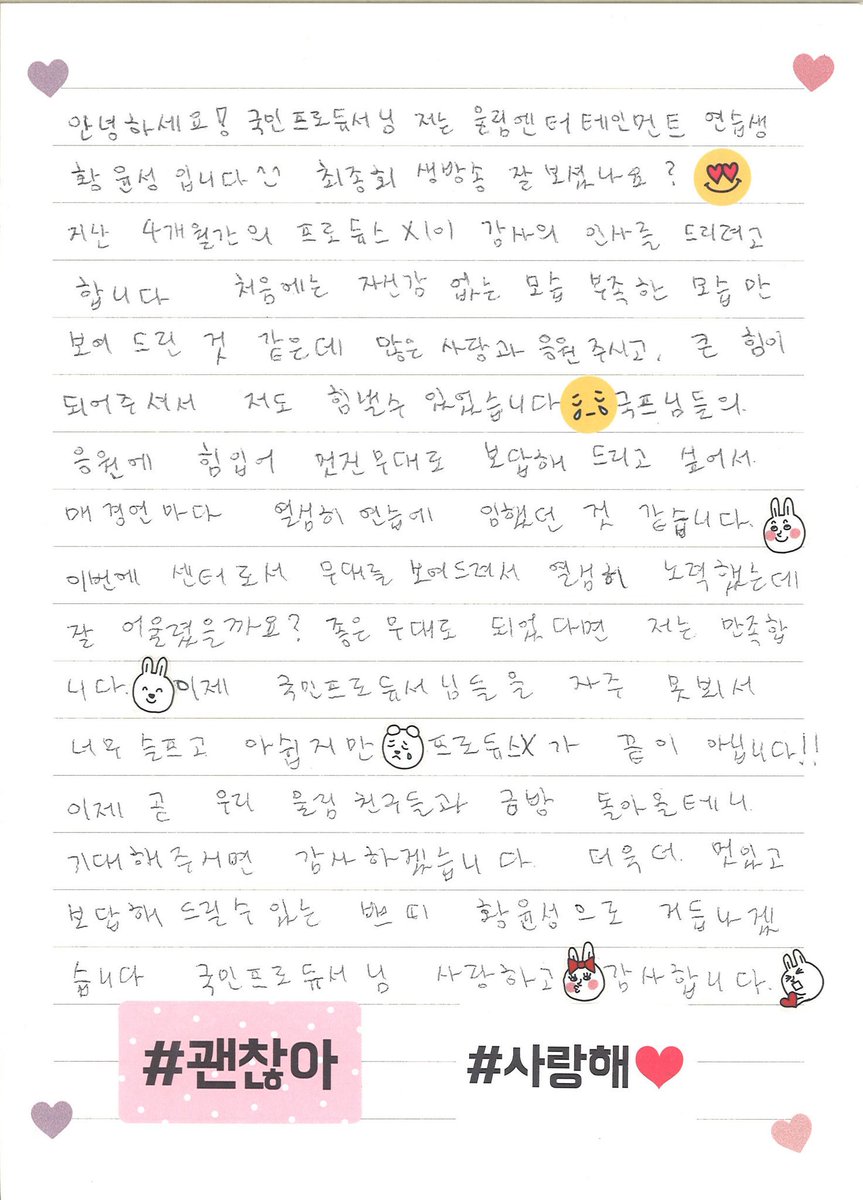 안녕하세요! 국민프로듀서님 저는 울림엔터테인먼트 연습생
황윤성 입니다^^ 최종회 생방송 잘 보셨나요?
지난 4개월간의 프로듀스X1이 감사의 인사를 드리려고
합니다 처음에는 자신감 없는 모습 부족한 모습만
보여 드린 것 같은데 많은 사랑과 응원주시고, 큰 힘이
되어주셔서 저도 힘낼수 있었습니다 국프님들의
응원에 힘입어 멋진무대로 보답해 드리고 싶어서
매 경연마다 열심히 연습에 임했던 것 같습니다.
이번에 센터로서 무대를 보여드려서 열심히 노력했는데
잘 어울렸을까요? 좋은 무대로 되었다면 저는 만족합
니다. 이제 국민프로듀서님들을 자주 못봬서
너무 슬프고 아쉽지만 프로듀스X가 끝이 아닙니다!!
이제 곧 우리 울림친구들과 금방 돌아올테니
기대해주시면 감사하겠습니다. 더욱더 멋있고
보답해 드릴수 있는 쁘띠 황윤성으로 거듭나겠
습니다 국민프로듀서님 사랑하고 감사합니다.
#괜찮아 #사랑해